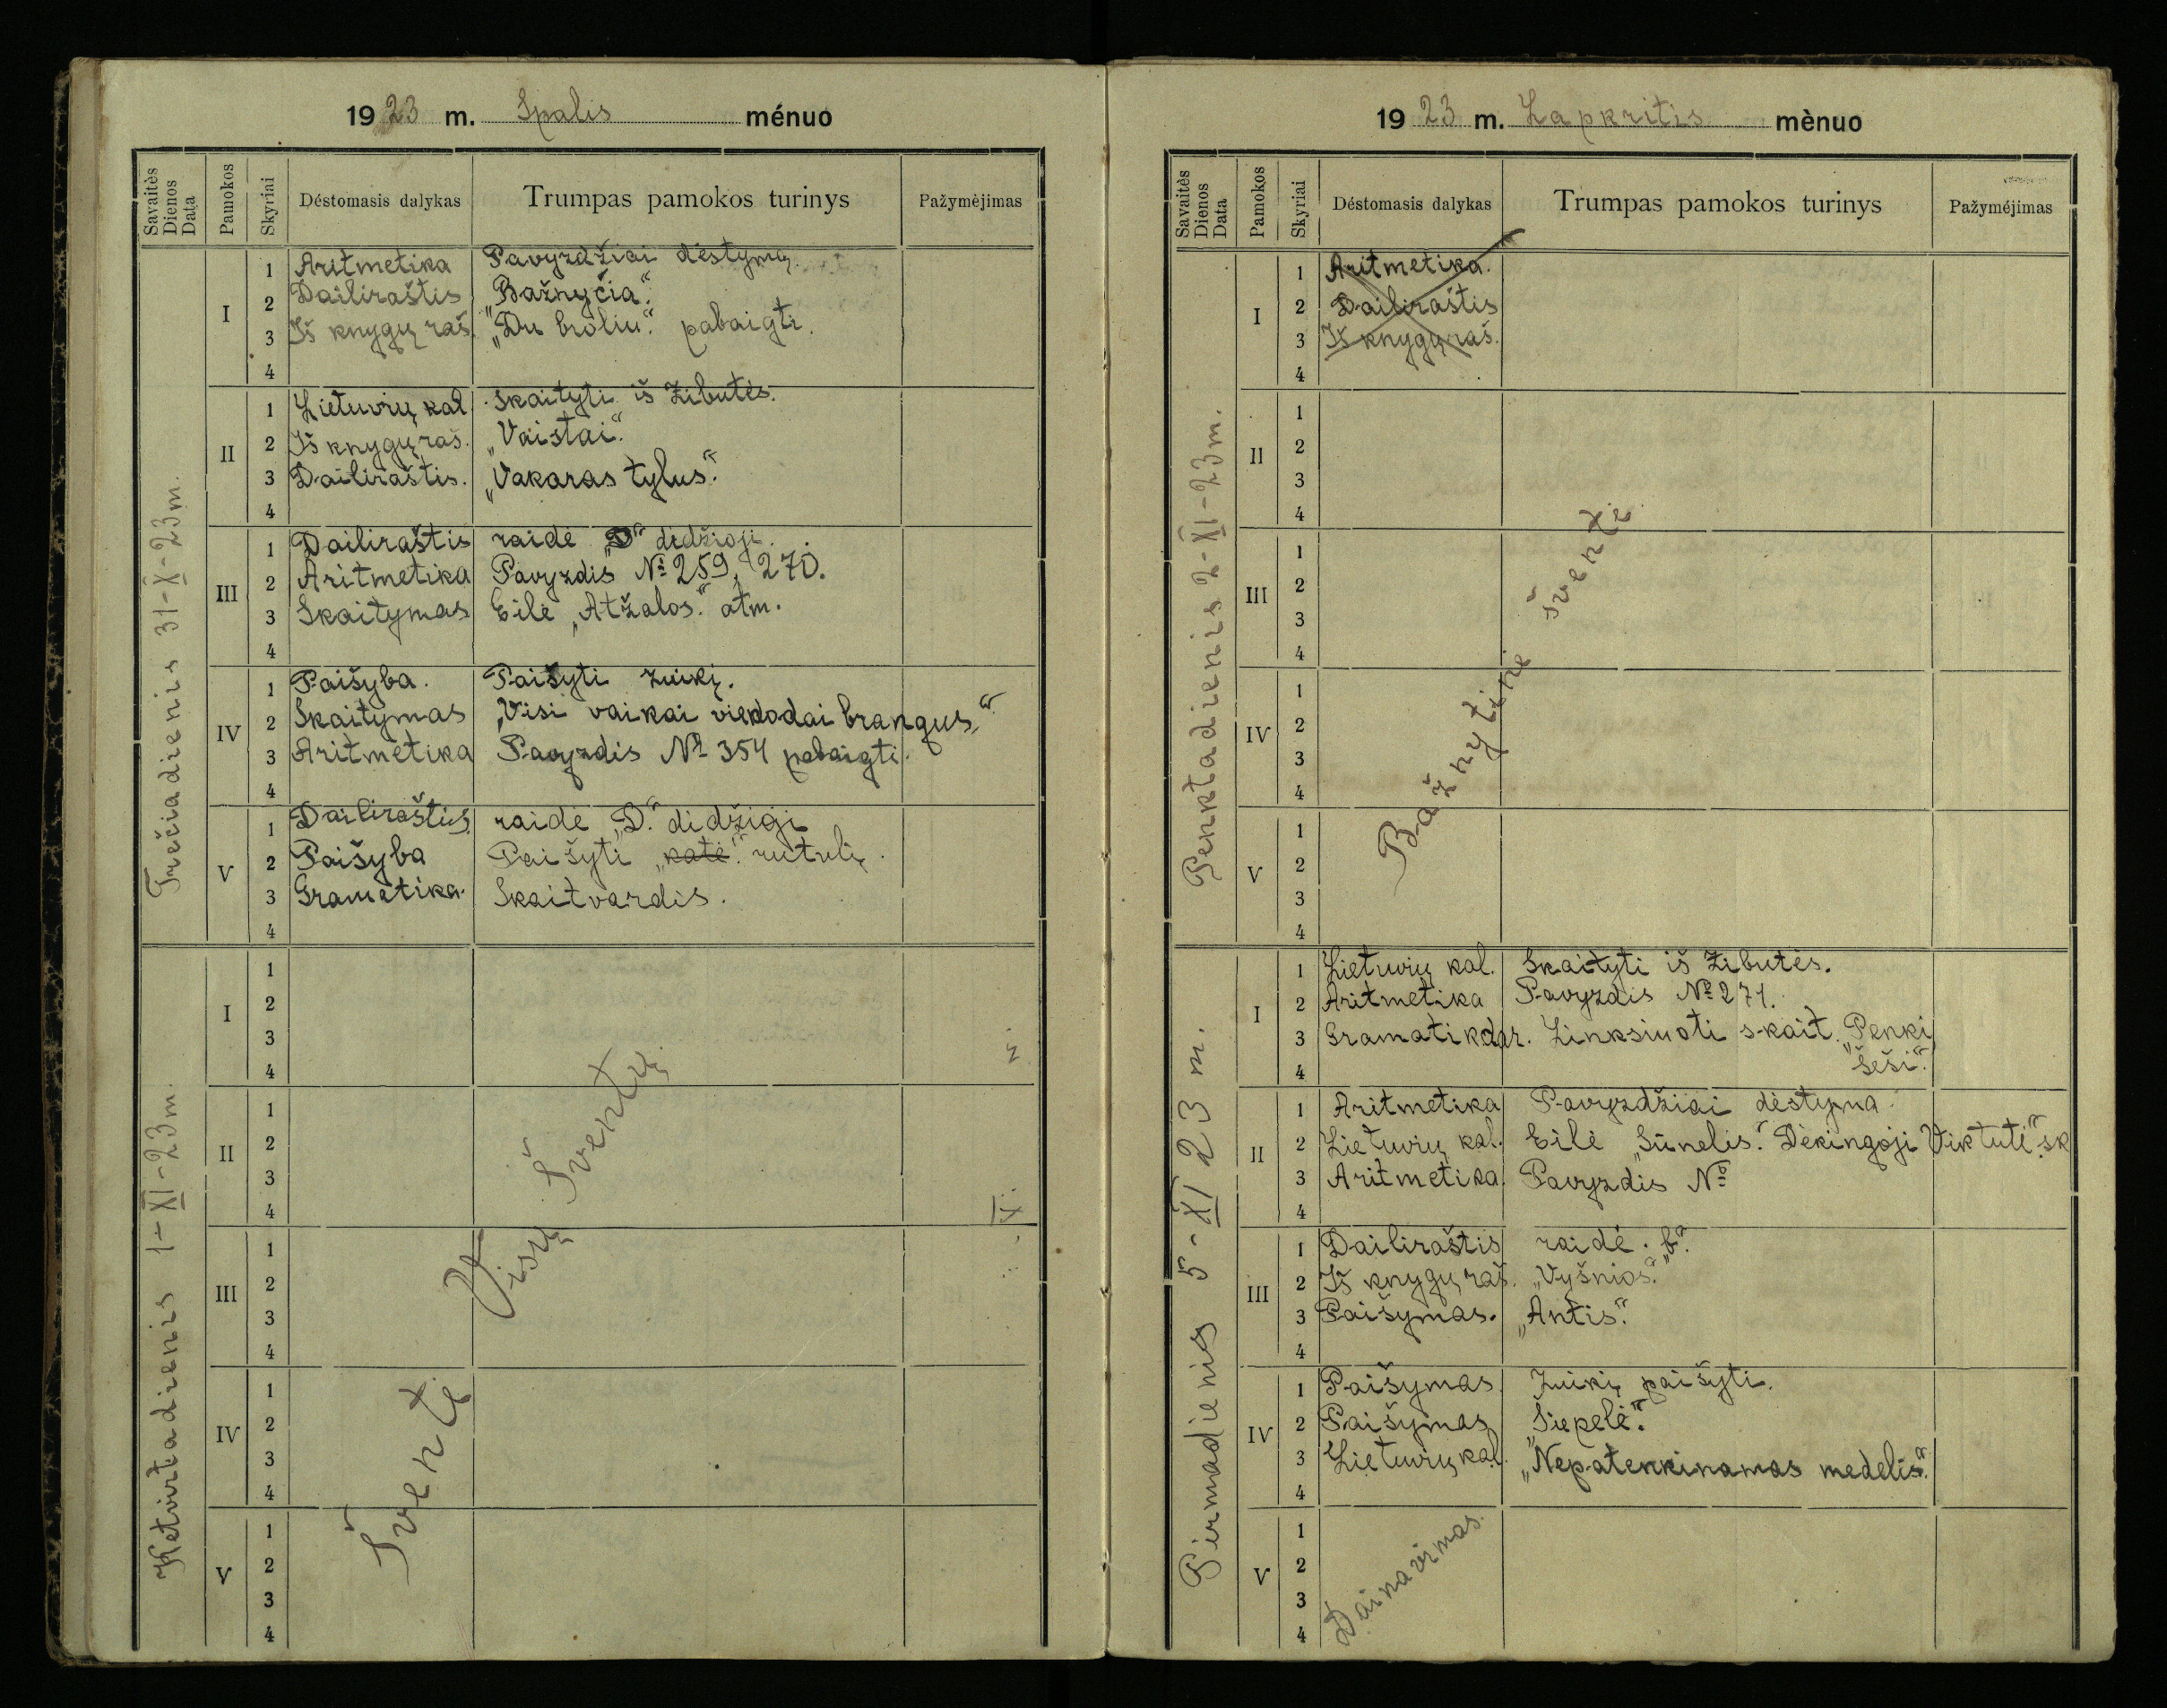 1923 m. Spalis ménuo
Savaitės Dienos Data
Pamokos
Skyriai
Déstomasis dalykas
Trumpas pamokos turinys
Pažymėjimas
Trečiadienis 31-X-23 m.
I
1 Aritmetika Pavyzdžiai dėstymą.
2 Dailiraštis „Bažnyčia“.
3 Iš knygų raš. „Du broliu“. pabaigti.
4
II
1 Lietuvių kal. skaityti iš Žibutės.
2 Iš knygų raš. „Vaistai“.
3 Dailiraštis. „Vakaras tylus“.
4
III
1 Dailiraštis raidė „D“ didžioji.
2 Aritmetika Pavyzdis № 259, 270.
3 Skaitymas Eilė „Atžalos“. atm.
4
IV
1 Paišyba. Paišyti zuikį.
2 Skaitymas „Visi vaikai viedodai brangus.“
3 Aritmetika Pavyzdis № 354 pabaigti.
4
V
1 Dailiraštis raidė „D“. didžioji
2 Paišyba Paišyti „katė“. rutulį.
3 Gramatika. Skaitvardis.
4
Ketvirtadienis 1-XI-23 m.
I
1
2
3
4
II
1
2
3
4
III
1
2
3
4
IV
1
2
3
4
V
1
2
3
4
Visų Šventų
Šventė
1923 m. Lapkritis mėnuo
Savaitės Dienos Data
Pamokos
Skyriai
Déstomasis dalykas
Trumpas pamokos turinys
Pažymėjimas
Penktadienis 2-XI-23 m.
I
1 Aritmetika.
2 Dailiraštis
3 Iš knygų raš.
4
II
1
2
3
4
III
1
2
3
4
IV
1
2
3
4
V
1
2
3
4
Bažnytinė šventė
Pirmadienis 5-XI 23 m.
I
1 Lietuvių kal. Skaityti iš Žibutės.
2 Aritmetika Pavyzdis № 271.
3 Gramatika dar. Linksiuoti skait. „Penki,
4 „šeši“.
II
1 Aritmetika Pavyzdžiai dėstyma.
2 Lietuvių kal. Eilė „Sūnelis“. Dėkingoji Viktutė“. sk
3 Aritmetika. Pavyzdis №
4
III
1 Dailiraštis raidė. „b“.
2 Iš knygų raš. „Vyšnios“.
3 Paišymas. „Antis“.
4
IV
1 Paišymas. Zuikį paišyti.
2 Paišymas „Šiepelė“.
3 Lietuvių kal. „Nepatenkinamas medelis“.
4
V
1
2
3
4
Dainavimas.